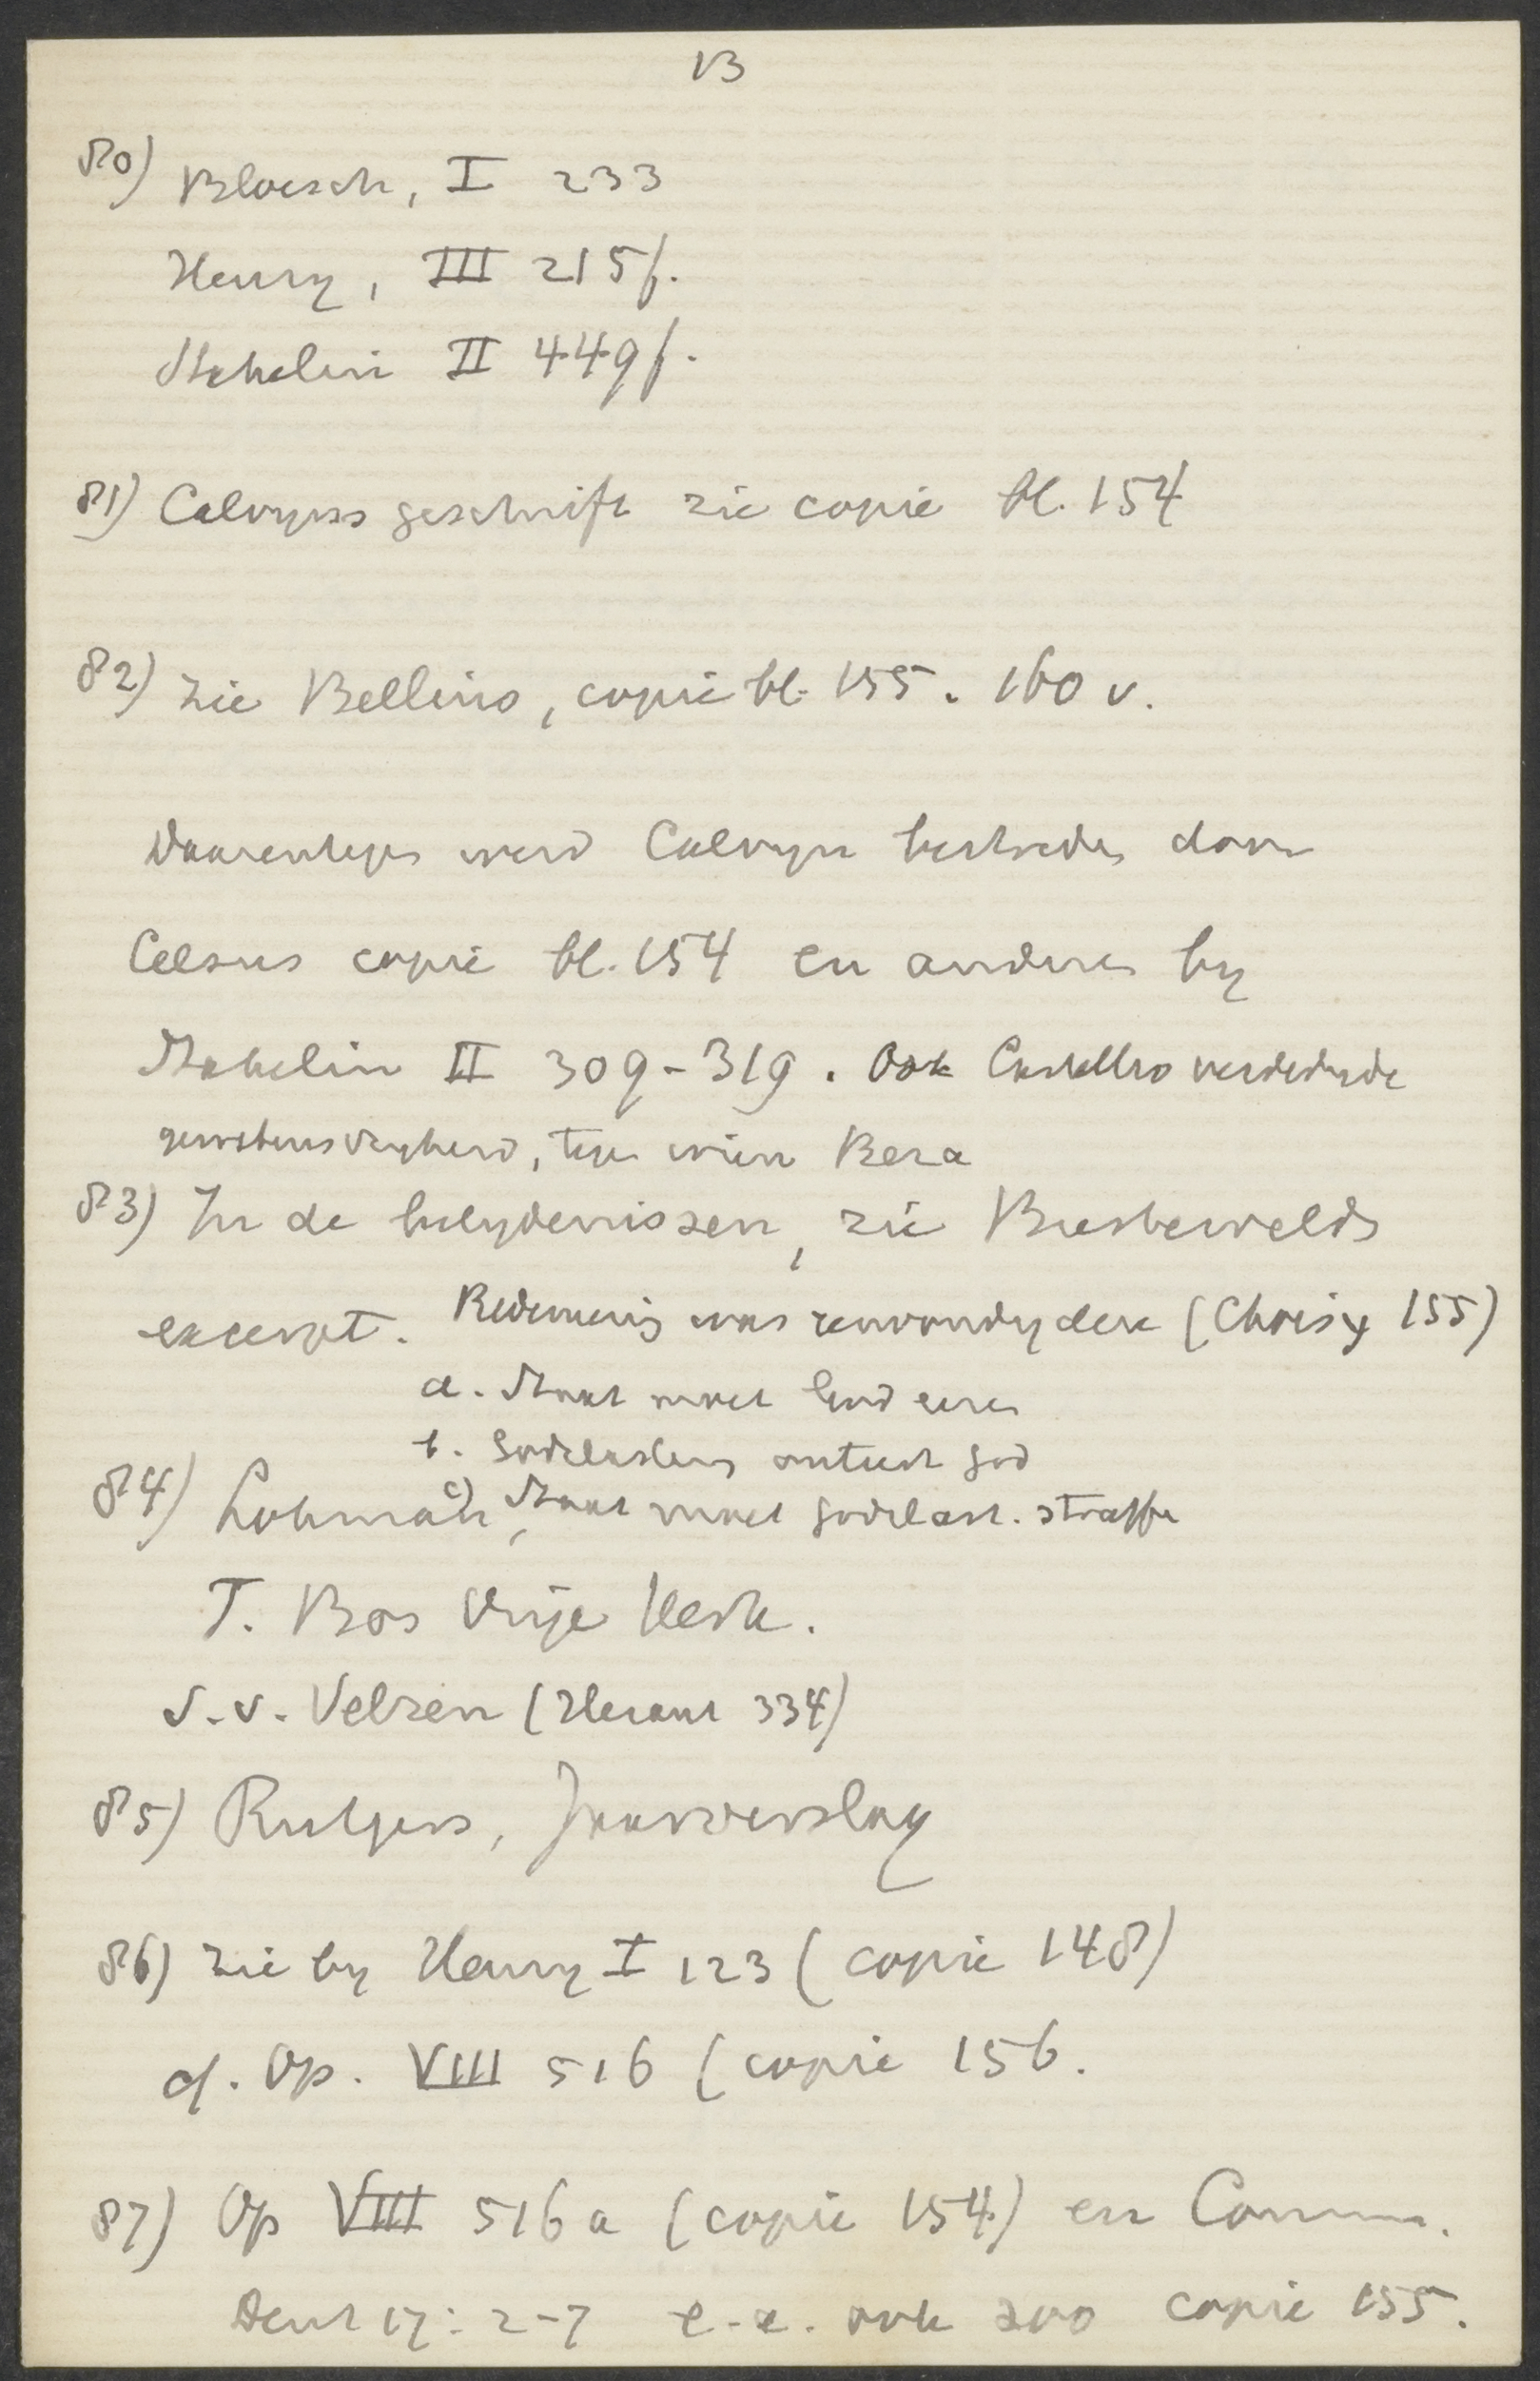 13
80) Bloesch, I 233
Henry, III 215f.
Stähelin II 449f.
81) Calvyns geschrift zie copie bl. 154
82) zie Bellius, copie bl. 155. 160 v.
Daarentegen werd Calvyn bestreden door
Celsus copie bl. 154 en anderen by
Stähelin II 309-319. Ook Castellio verdedigde
gewetensvryheid, tegen wien Beza
83) In de belydenissen, zie Biesterveld's
excerpt. Redeneering was eenvoudig deze (Choisy 155)
a. Staat moet God eeren
b. Godslastering onteert God
c) Staat moet godslast. straffen
84) Lohman,
T. Bos Vrije Kerk.
S. v. Velzen (Heraut 334)
85) Rutgers, Jaarverslag
86) zie by Henry I 123 (copie 148)
cf. Op. VIII 516 (copie 156.
87) Op VIII 516a (copie 154) en Comm.
Deut 17:2-7 e.e. ook zoo copie 155.